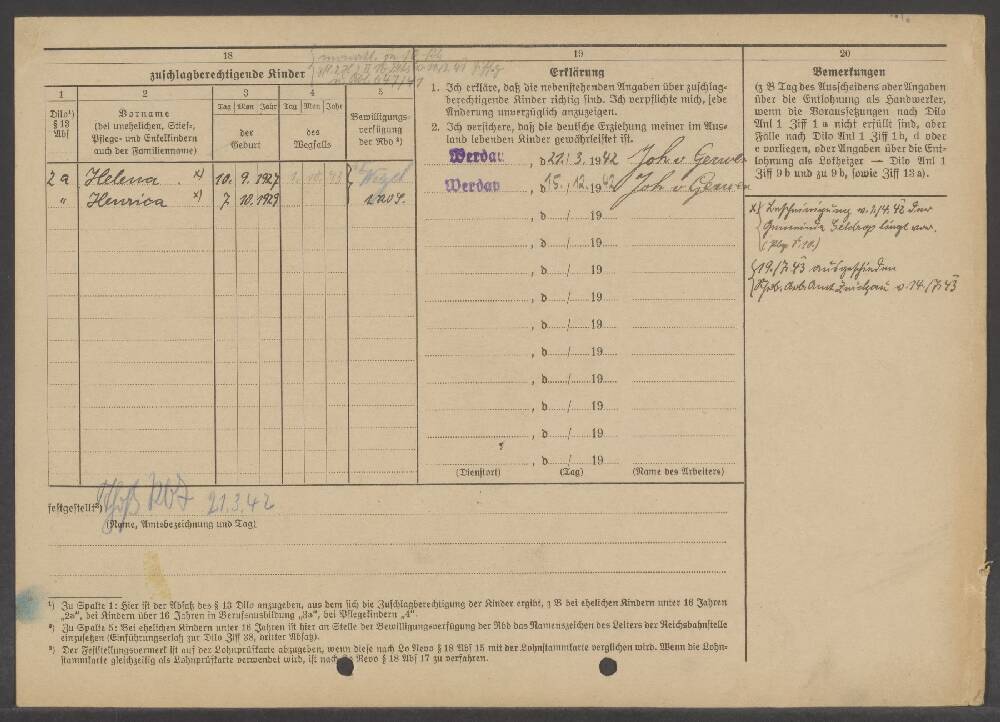 18
zuschlagberechtigende Kinder
1
2
3
4
5
Dilo¹)
§ 13
Abs
Vorname
(bei unehelichen, Stief-,
Pflege- und Enkelkindern
auch der Familienname)
Tag Mon Jahr
der
Geburt
Tag Mon Jahr
des
Wegfalls
Bewilligungs-
verfügung
der Rbd ²)
2a Helena x) 10. 9. 1927
" Henrica x) 7. 10. 1929
19
Erklärung
1. Ich erkläre, daß die nebenstehenden Angaben über zuschlag-
berechtigende Kinder richtig sind. Ich verpflichte mich, jede
Änderung unverzüglich anzuzeigen.
2. Ich versichere, daß die deutsche Erziehung meiner im Aus-
land lebenden Kinder gewährleistet ist.
Werdau , d 21/3. 1942 Joh. v. Gerwen
Werdau , d 15./12. 1942 Joh. v. Gerwen
, d / 19
, d / 19
, d / 19
, d / 19
, d / 19
, d / 19
, d / 19
, d / 19
, d / 19
, d / 19
(Dienstort) (Tag) (Name des Arbeiters)
20
Bemerkungen
(z B Tag des Ausscheidens oder Angaben
über die Entlohnung als Handwerker,
wenn die Voraussetzungen nach Dilo
Anl 1 Ziff 1 a nicht erfüllt sind, aber
Fälle nach Dilo Anl 1 Ziff 1 b, d oder
e vorliegen, oder Angaben über die Ent-
lohnung als Lotheizer — Dilo Anl 1
Ziff 9 b und zu 9 b, sowie Ziff 13 a).
x) Bescheinigung v. 1/4. 42 der
Gemeinde Geldrop liegt vor.
19./7. 43 ausgeschieden
Arb. Amt Zwickau v. 14./7. 43
festgestellt³) 21.3.42
(Name, Amtsbezeichnung und Tag)
¹) Zu Spalte 1: Hier ist der Absatz des § 13 Dilo anzugeben, aus dem sich die Zuschlagberechtigung der Kinder ergibt, z B bei ehelichen Kindern unter 16 Jahren
„2a“, bei Kindern über 16 Jahren in Berufsausbildung „3a“, bei Pflegekindern „4“.
²) Zu Spalte 5: Bei ehelichen Kindern unter 16 Jahren ist hier an Stelle der Bewilligungsverfügung der Rbd das Namenszeichen des Leiters der Reichsbahnstelle
einzusetzen (Einführungserlaß zur Dilo Ziff 38, dritter Absatz).
³) Der Feststellungsvermerk ist auf der Lohnprüfkarte abzugeben, wenn diese nach Lo Revo § 18 Abs 15 mit der Lohnstammkarte verglichen wird. Wenn die Lohn-
stammkarte gleichzeitig als Lohnprüfkarte verwendet wird, ist nach Lo Revo § 18 Abs 17 zu verfahren.